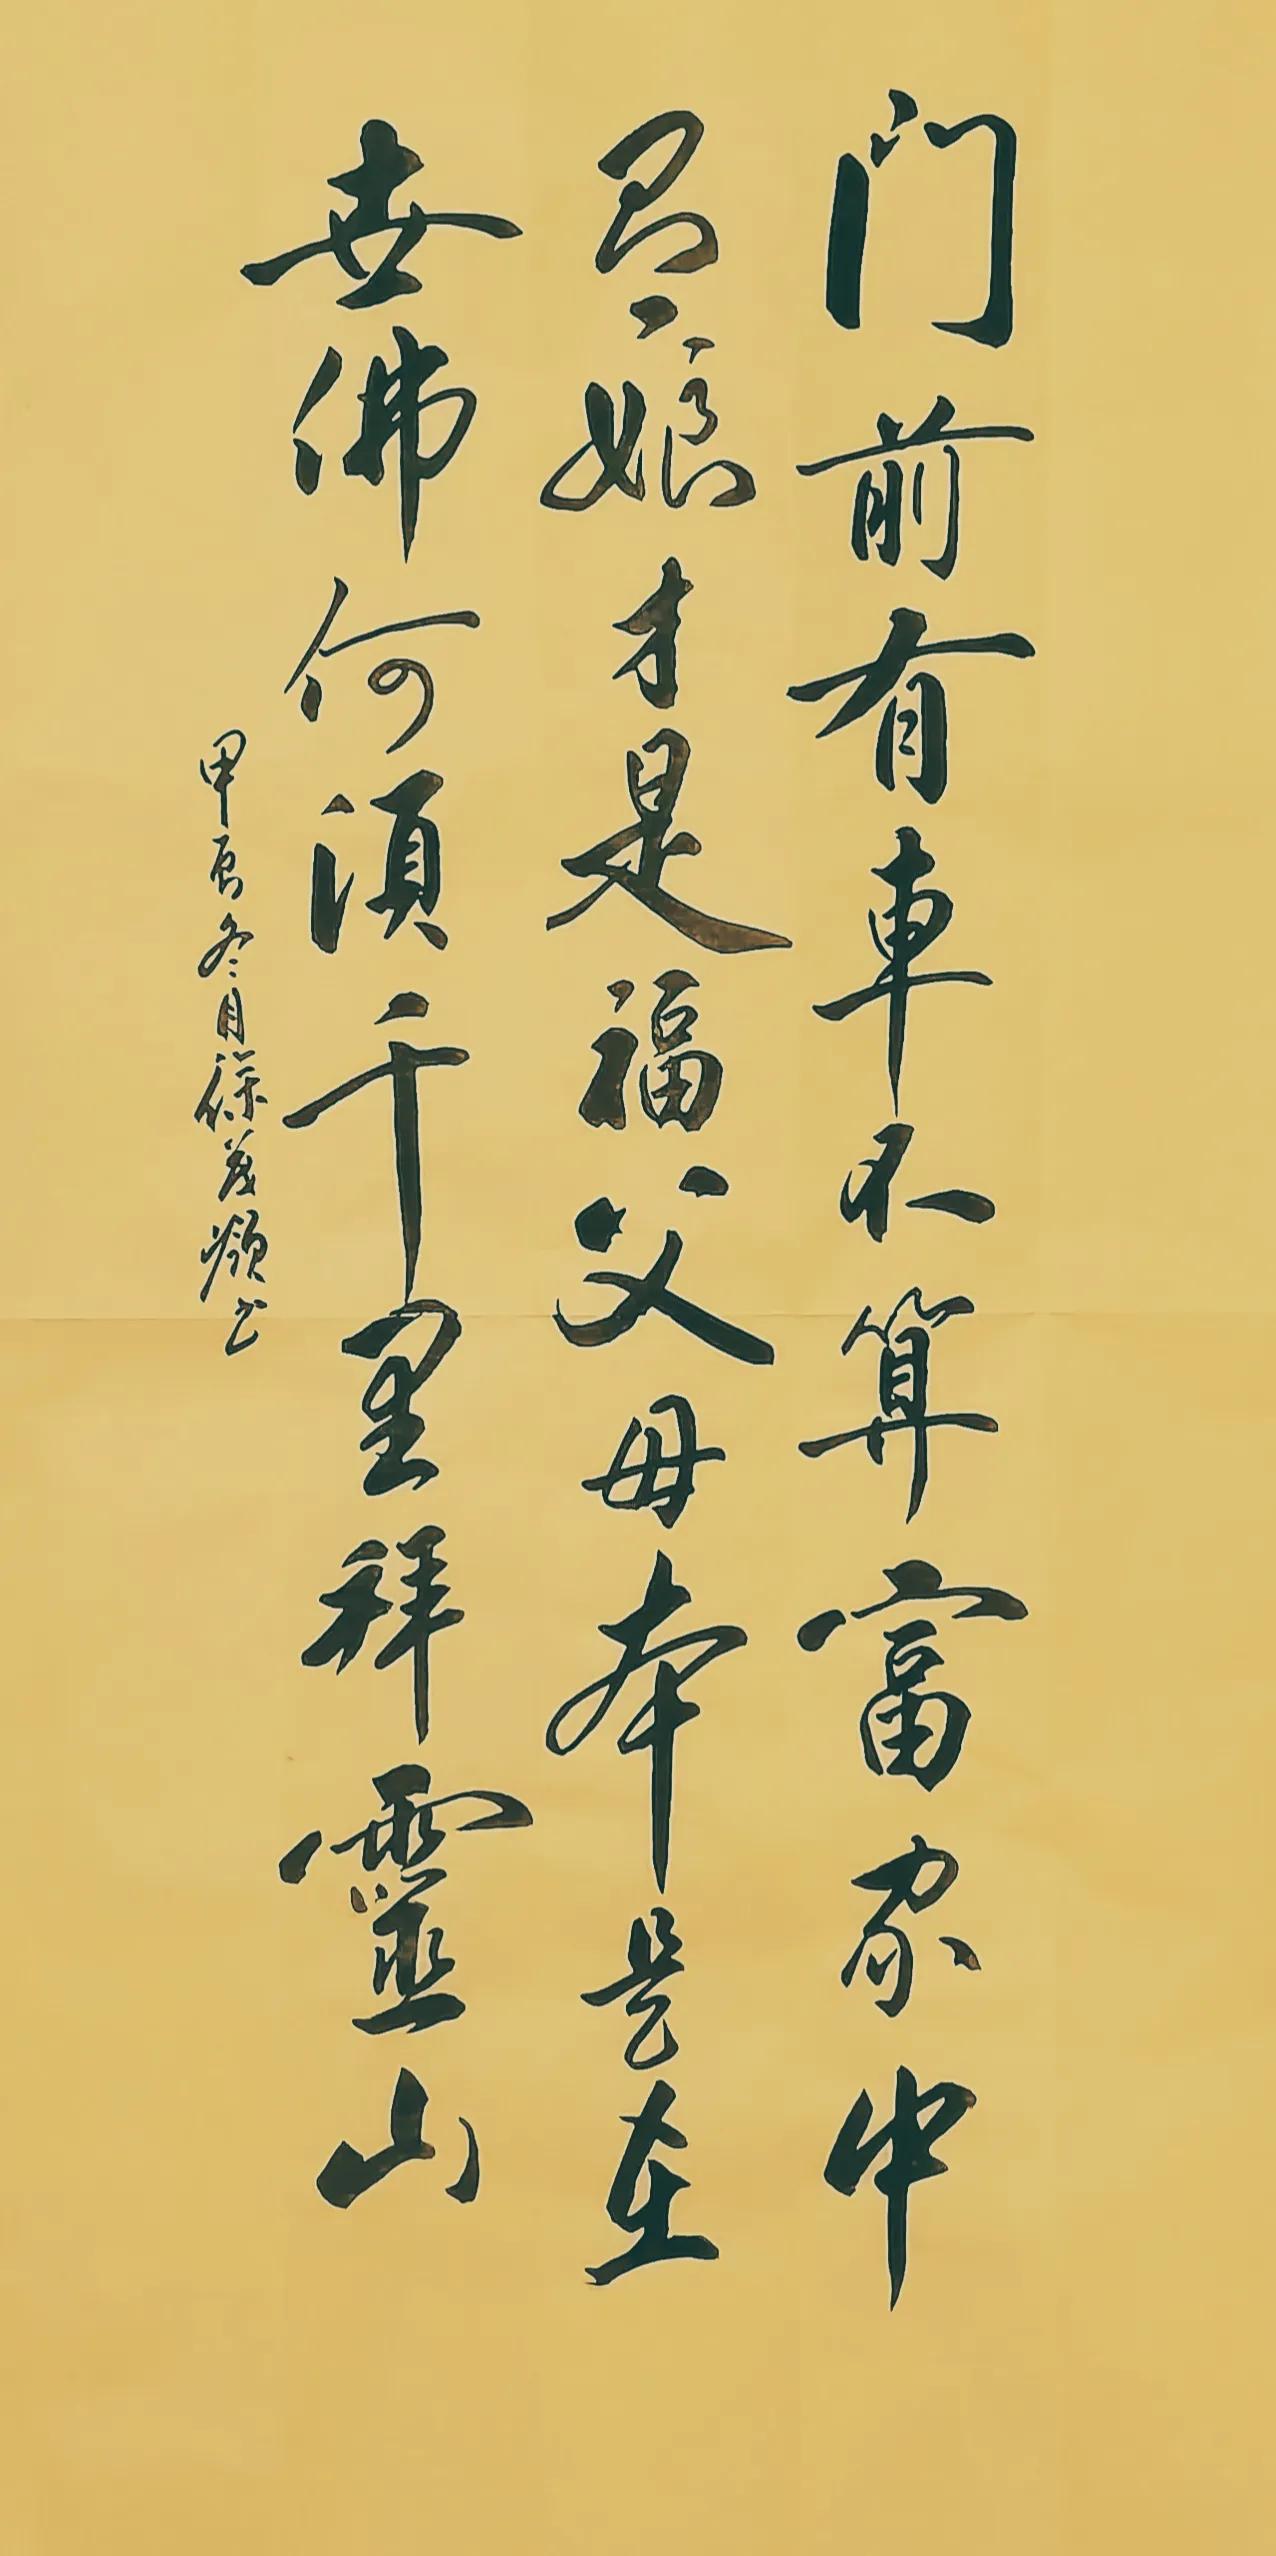 门前有車不算富家中
有娘才是福父母本是在
世佛何須千里拜靈山
甲辰冬月书